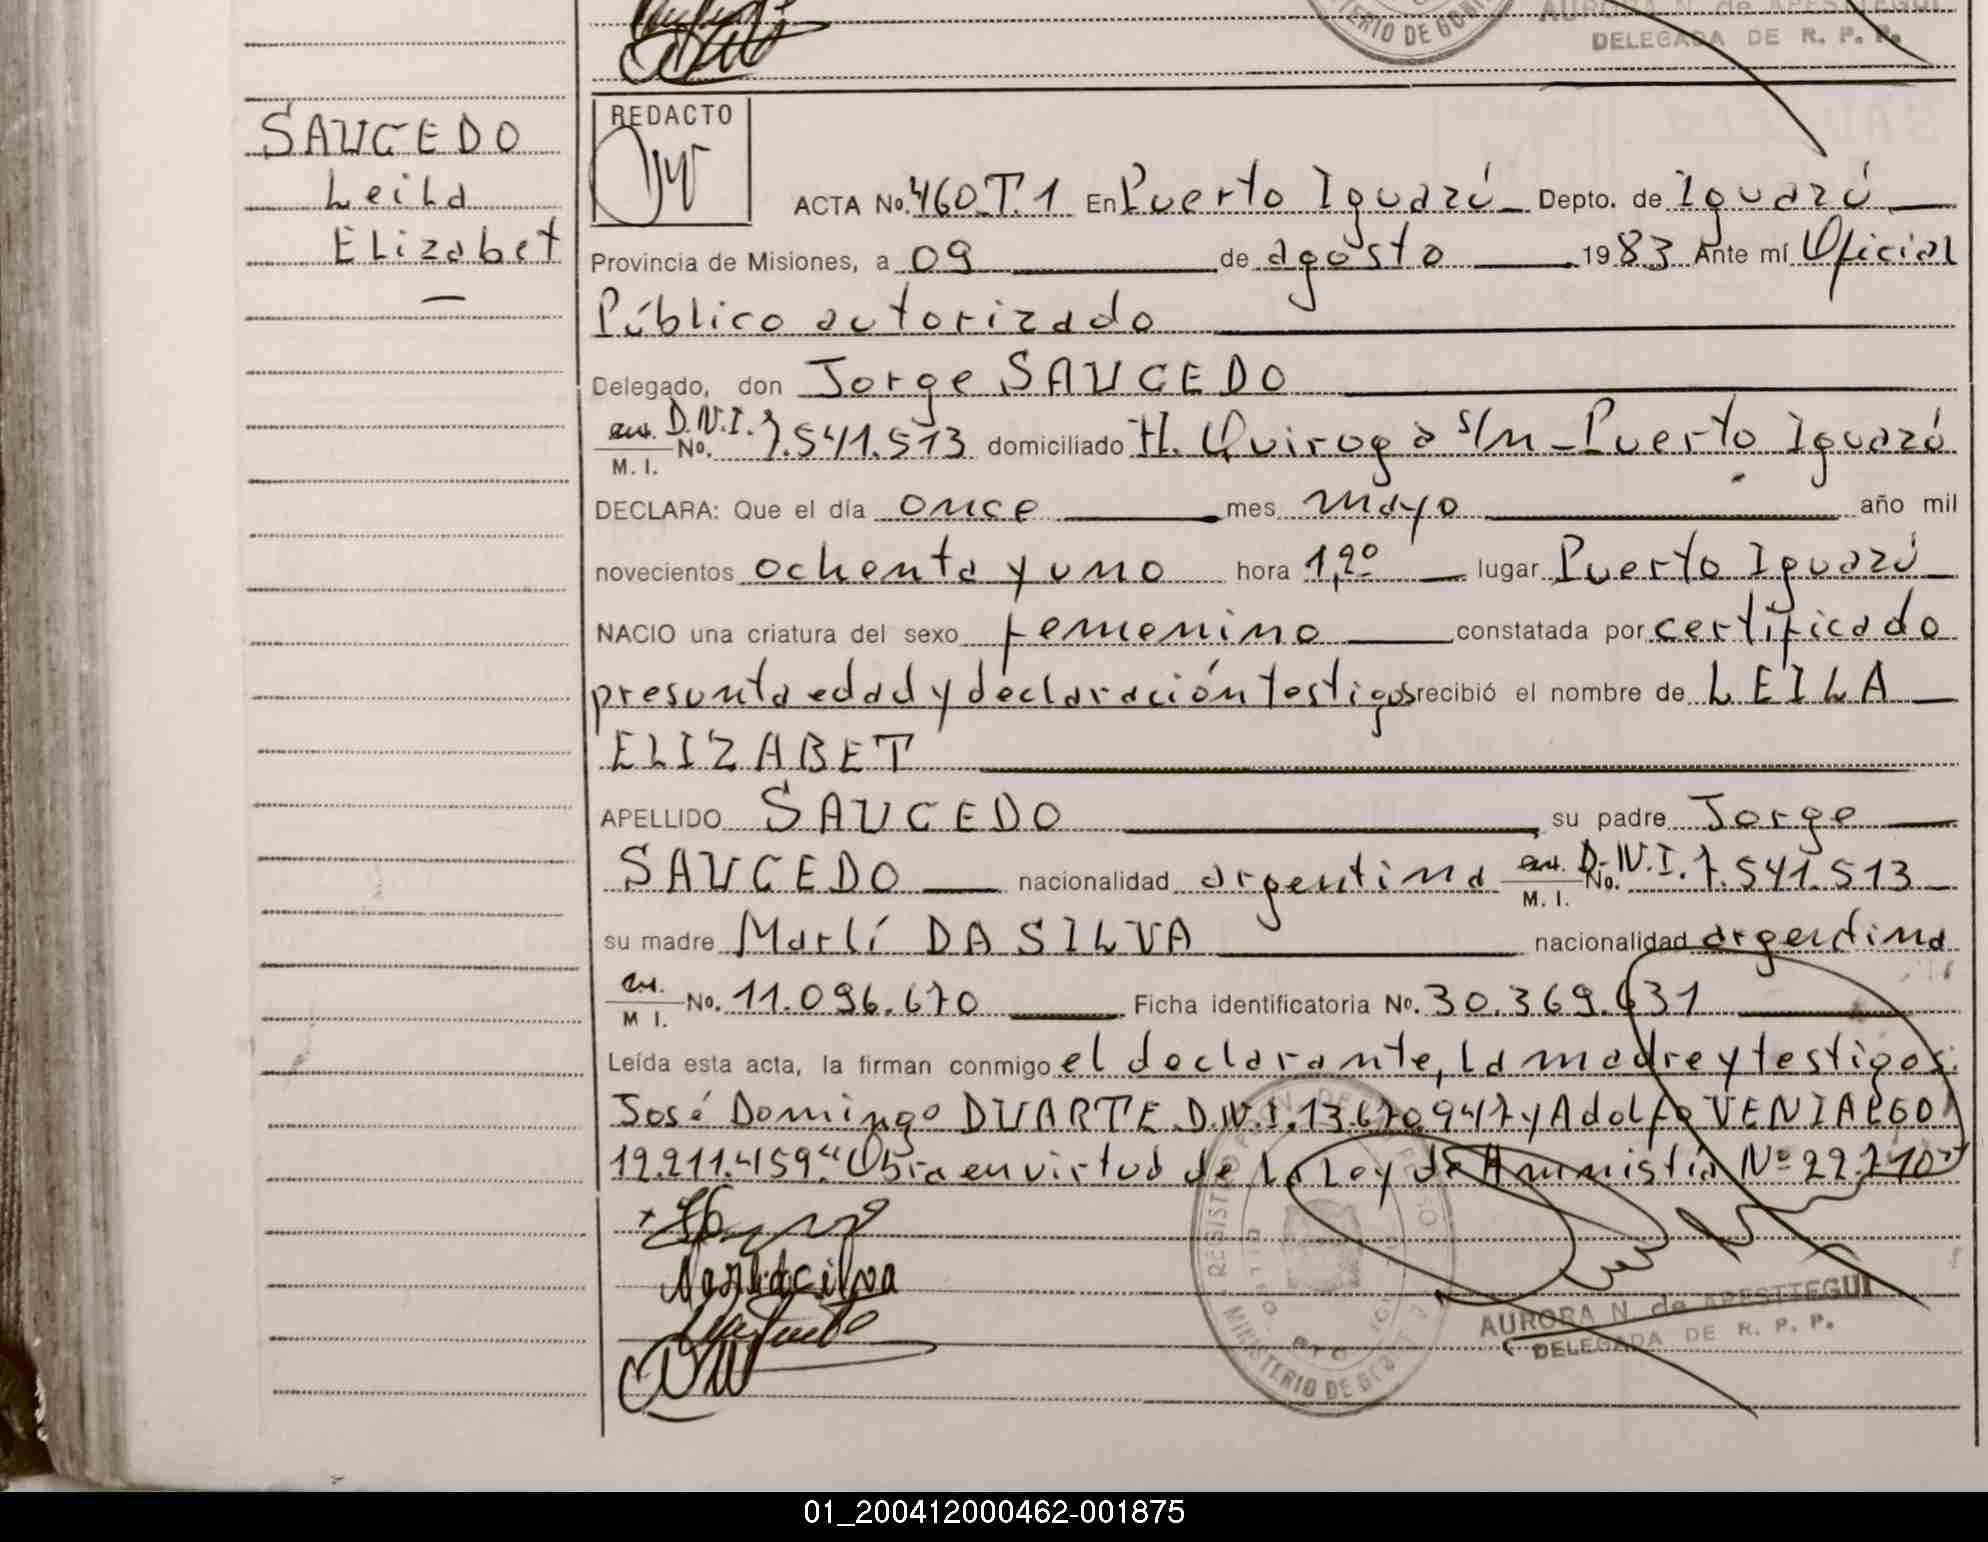 DELEGADA DE R. P. P.
SAUCEDO
Leila
Elizabet
REDACTO
ACTA No. 460.T.1 En Puerto Iguazú Depto. de Iguazú
Provincia de Misiones, a 09 de agosto 1983 Ante mí Oficial
Público autorizado
Delegado, don Jorge SAUCEDO
D.N.I.
M. I. No. 7.541.513 domiciliado H. Quiroga s/n - Puerto Iguazú
DECLARA: Que el día once mes mayo año mil
novecientos ochenta y uno hora 1,20 lugar Puerto Iguazú
NACIO una criatura del sexo femenino constatada por certificado
presunta edad y declaración testigos recibió el nombre de LEILA
ELIZABET
APELLIDO SAUCEDO su padre Jorge
SAUCEDO nacionalidad argentina M. I. No. D.N.I. 7.541.513
su madre Marlí DA SILVA nacionalidad argentina
M I. No. 11.096.670 Ficha identificatoria No. 30.369.631
Leída esta acta, la firman conmigo el declarante, la madre y testigos:
José Domingo DUARTE D.N.I. 13.670.947 y Adolfo VENIALGO
12.211.459." Obra en virtud de la Ley de Amnistía Nº 22.710"
AURORA N. de APESTTEGUI
DELEGADA DE R. P. P.
01_200412000462-001875